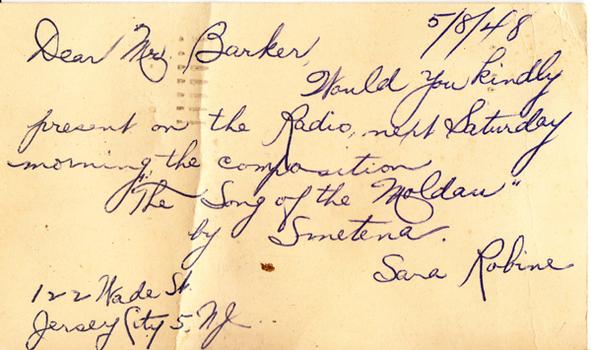 5/8/48
Dear Mr. Barker,
Would You kindly
present on the Radio, next Saturday
morning the composition
"The Song of the Moldau"
by Smetena.
Sara Robine
122 Wade St.
Jersey City 5, NJ.